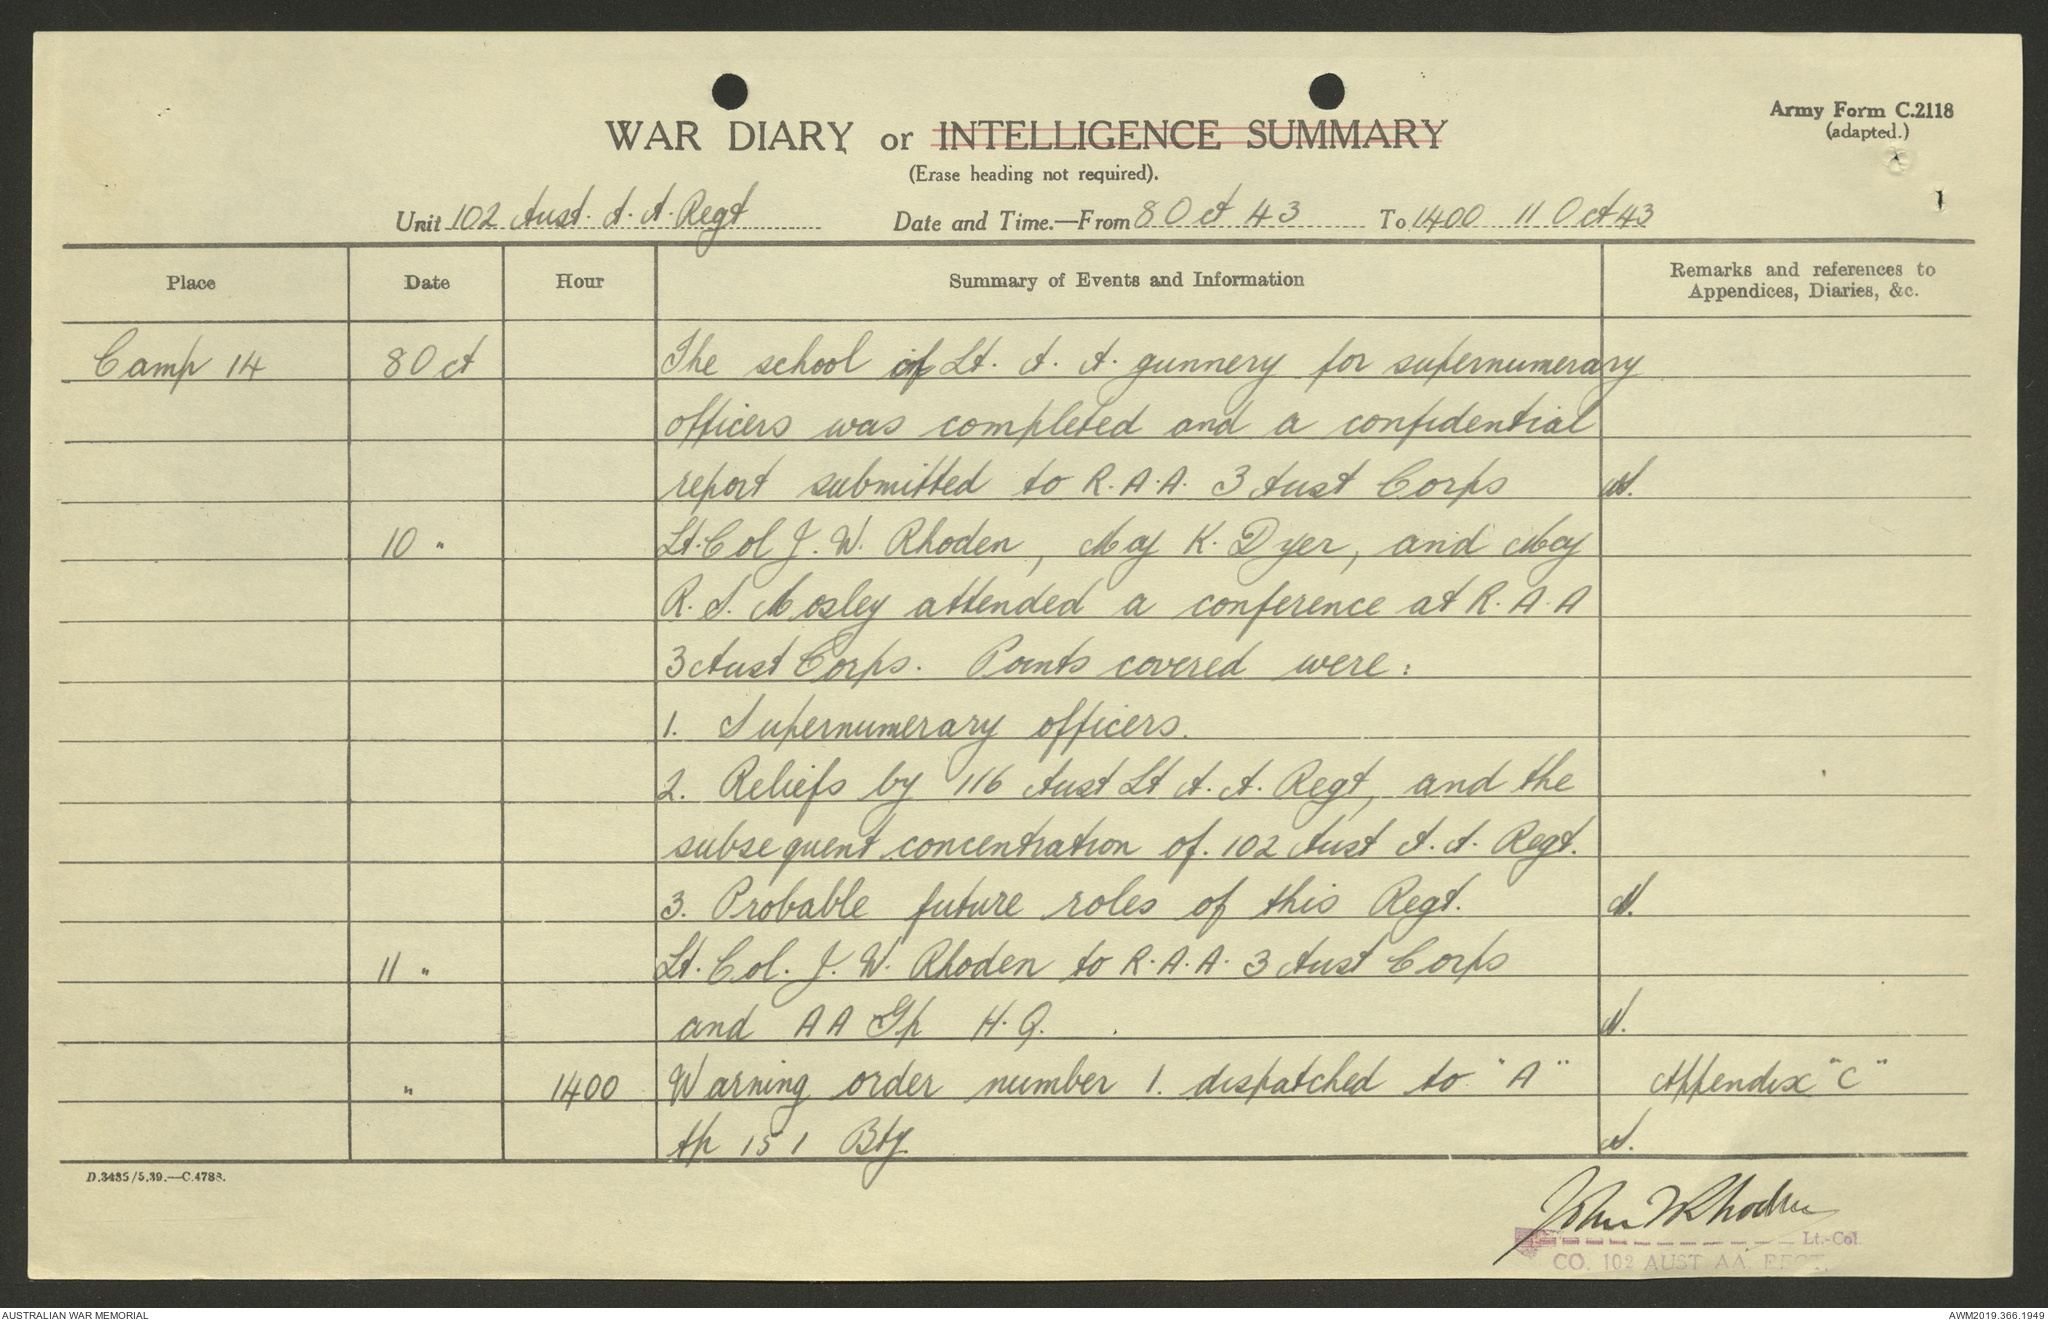 Army Form C.2118
(adapted.)
WAR DIARY or INTELLIGENCE SUMMARY
(Erase heading not required).
1
Unit 102 Aust. A. A. Regt Date and Time.—From 8 Oct 43 To 1400 11 Oct 43
Place Date Hour Summary of Events and Information Remarks and references to Appendices, Diaries, &c.
Camp 14 8 Oct The school of Lt. A. A. gunnery for supernumerary
officers was completed and a confidential
report submitted to R.A.A. 3 Aust Corps
10 " Lt. Col J. W. Rhoden, Maj K. Dyer, and Maj
R. S. Mosley attended a conference at R. A. A
3 Aust Corps. Points covered were:
1. Supernumerary officers.
2. Reliefs by 116 Aust Lt A. A. Regt, and the
subsequent concentration of. 102 Aust A. A. Regt.
3. Probable future roles of this Regt.
11 " Lt. Col. J. W. Rhoden to R.A.A. 3 Aust Corps
and A A Gp H. Q.
" 1400 Warning order number 1. dispatched to "A" Appendix "C"
tp 151 Bty
D.3435/5.39.—C.4788.
John W Rhoden
Lt.-Col.
CO. 102 AUST AA. REGT.
AUSTRALIAN WAR MEMORIAL AWM2019.366.1949